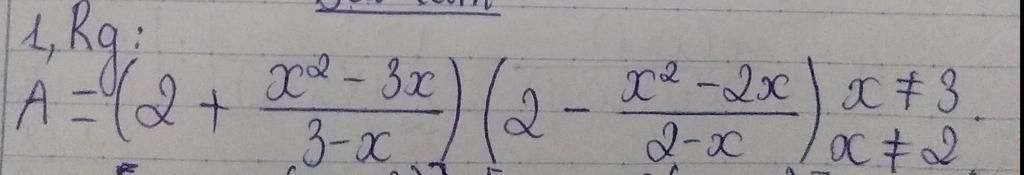 1, Rg:
A = (2 + \frac{x^2 - 3x}{3 - x}) (2 - \frac{x^2 - 2x}{2 - x}) x ≠ 3 x ≠ 2.